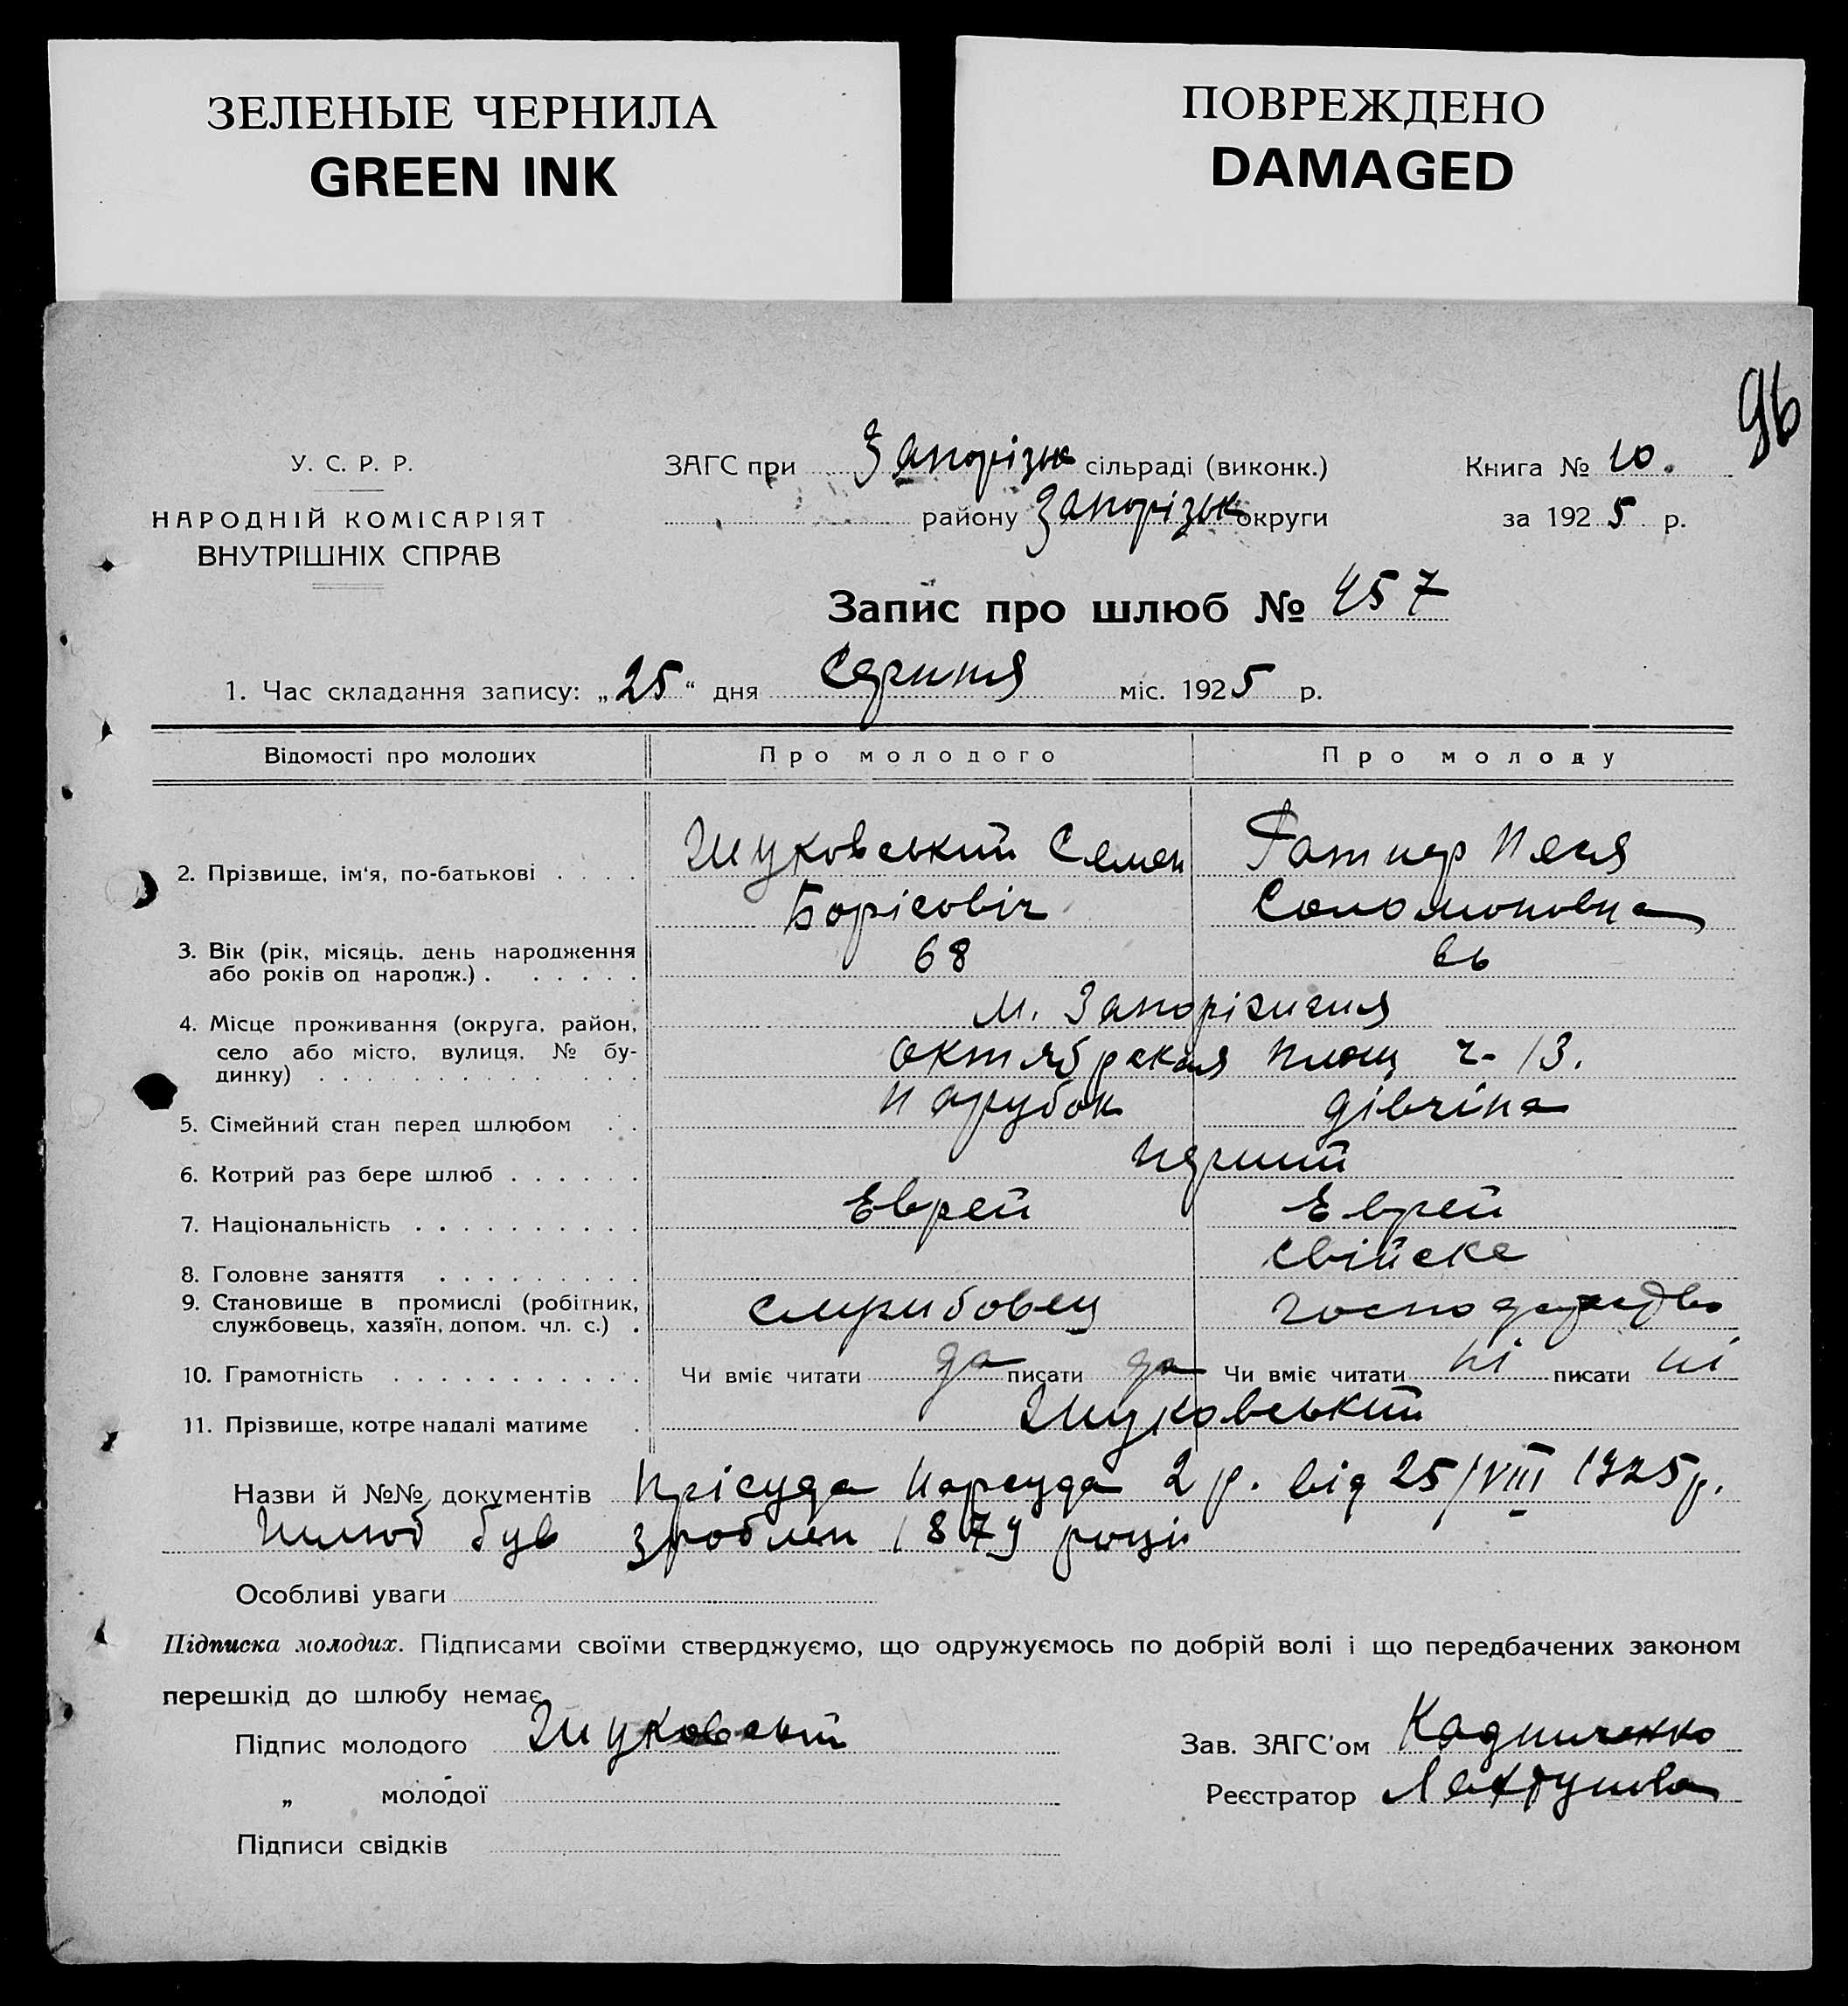 ЗЕЛЕНЫЕ ЧЕРНИЛА
GREEN INK
ПОВРЕЖДЕНО
DAMAGED
96
У. С. Р. Р.
НАРОДНІЙ КОМІСАРІЯТ
ВНУТРІШНІХ СПРАВ
ЗАГС при Запорізьк сільраді (виконк.)
району Запорізьк округи
Книга № 10.
за 1925 р.
Запис про шлюб № 457
1. Час складання запису: „25“ дня Серпня міс. 1925 р.
Відомості про молодих Про молодого Про молоду
2. Прізвище, ім'я, по-батькові Жуковський Семен Ратнер Песя
Борісовіч Соломоновна
3. Вік (рік, місяць, день народження
або років од народж.) 68 66
4. Місце проживання (округа, район, м. Запоріжжя
село або місто, вулиця, № бу-
динку) Октябрская площ ч- 13.
5. Сімейний стан перед шлюбом парубок дівчіна
6. Котрий раз бере шлюб перший
7. Національність Еврей Еврей
8. Головне заняття свійске
9. Становище в промислі (робітник,
службовець, хазяїн, допом. чл. с.) господарство
10. Грамотність Чи вміє читати да писати да Чи вміє читати ні писати ні
11. Прізвище, котре надалі матиме Жуковський
Назви й №№ документів Прісуда Нарсуда 2 р. від 25/VIII 1925 р.
Шлюб був зроблен 1879 році
Особливі уваги
Підписка молодих. Підписами своїми стверджуємо, що одружуємось по добрій волі і що передбачених законом
перешкід до шлюбу немає
Підпис молодого Жуковський
„ молодої
Підписи свідків
Зав. ЗАГС'ом
Реєстратор